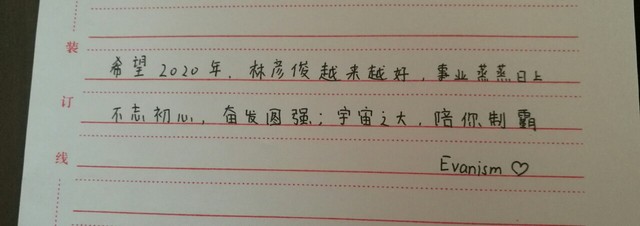 装
希望2020年，林彦俊越来越好，事业蒸蒸日上
订
不忘初心，奋发图强；宇宙之大，陪你制霸
线
Evanism ♡